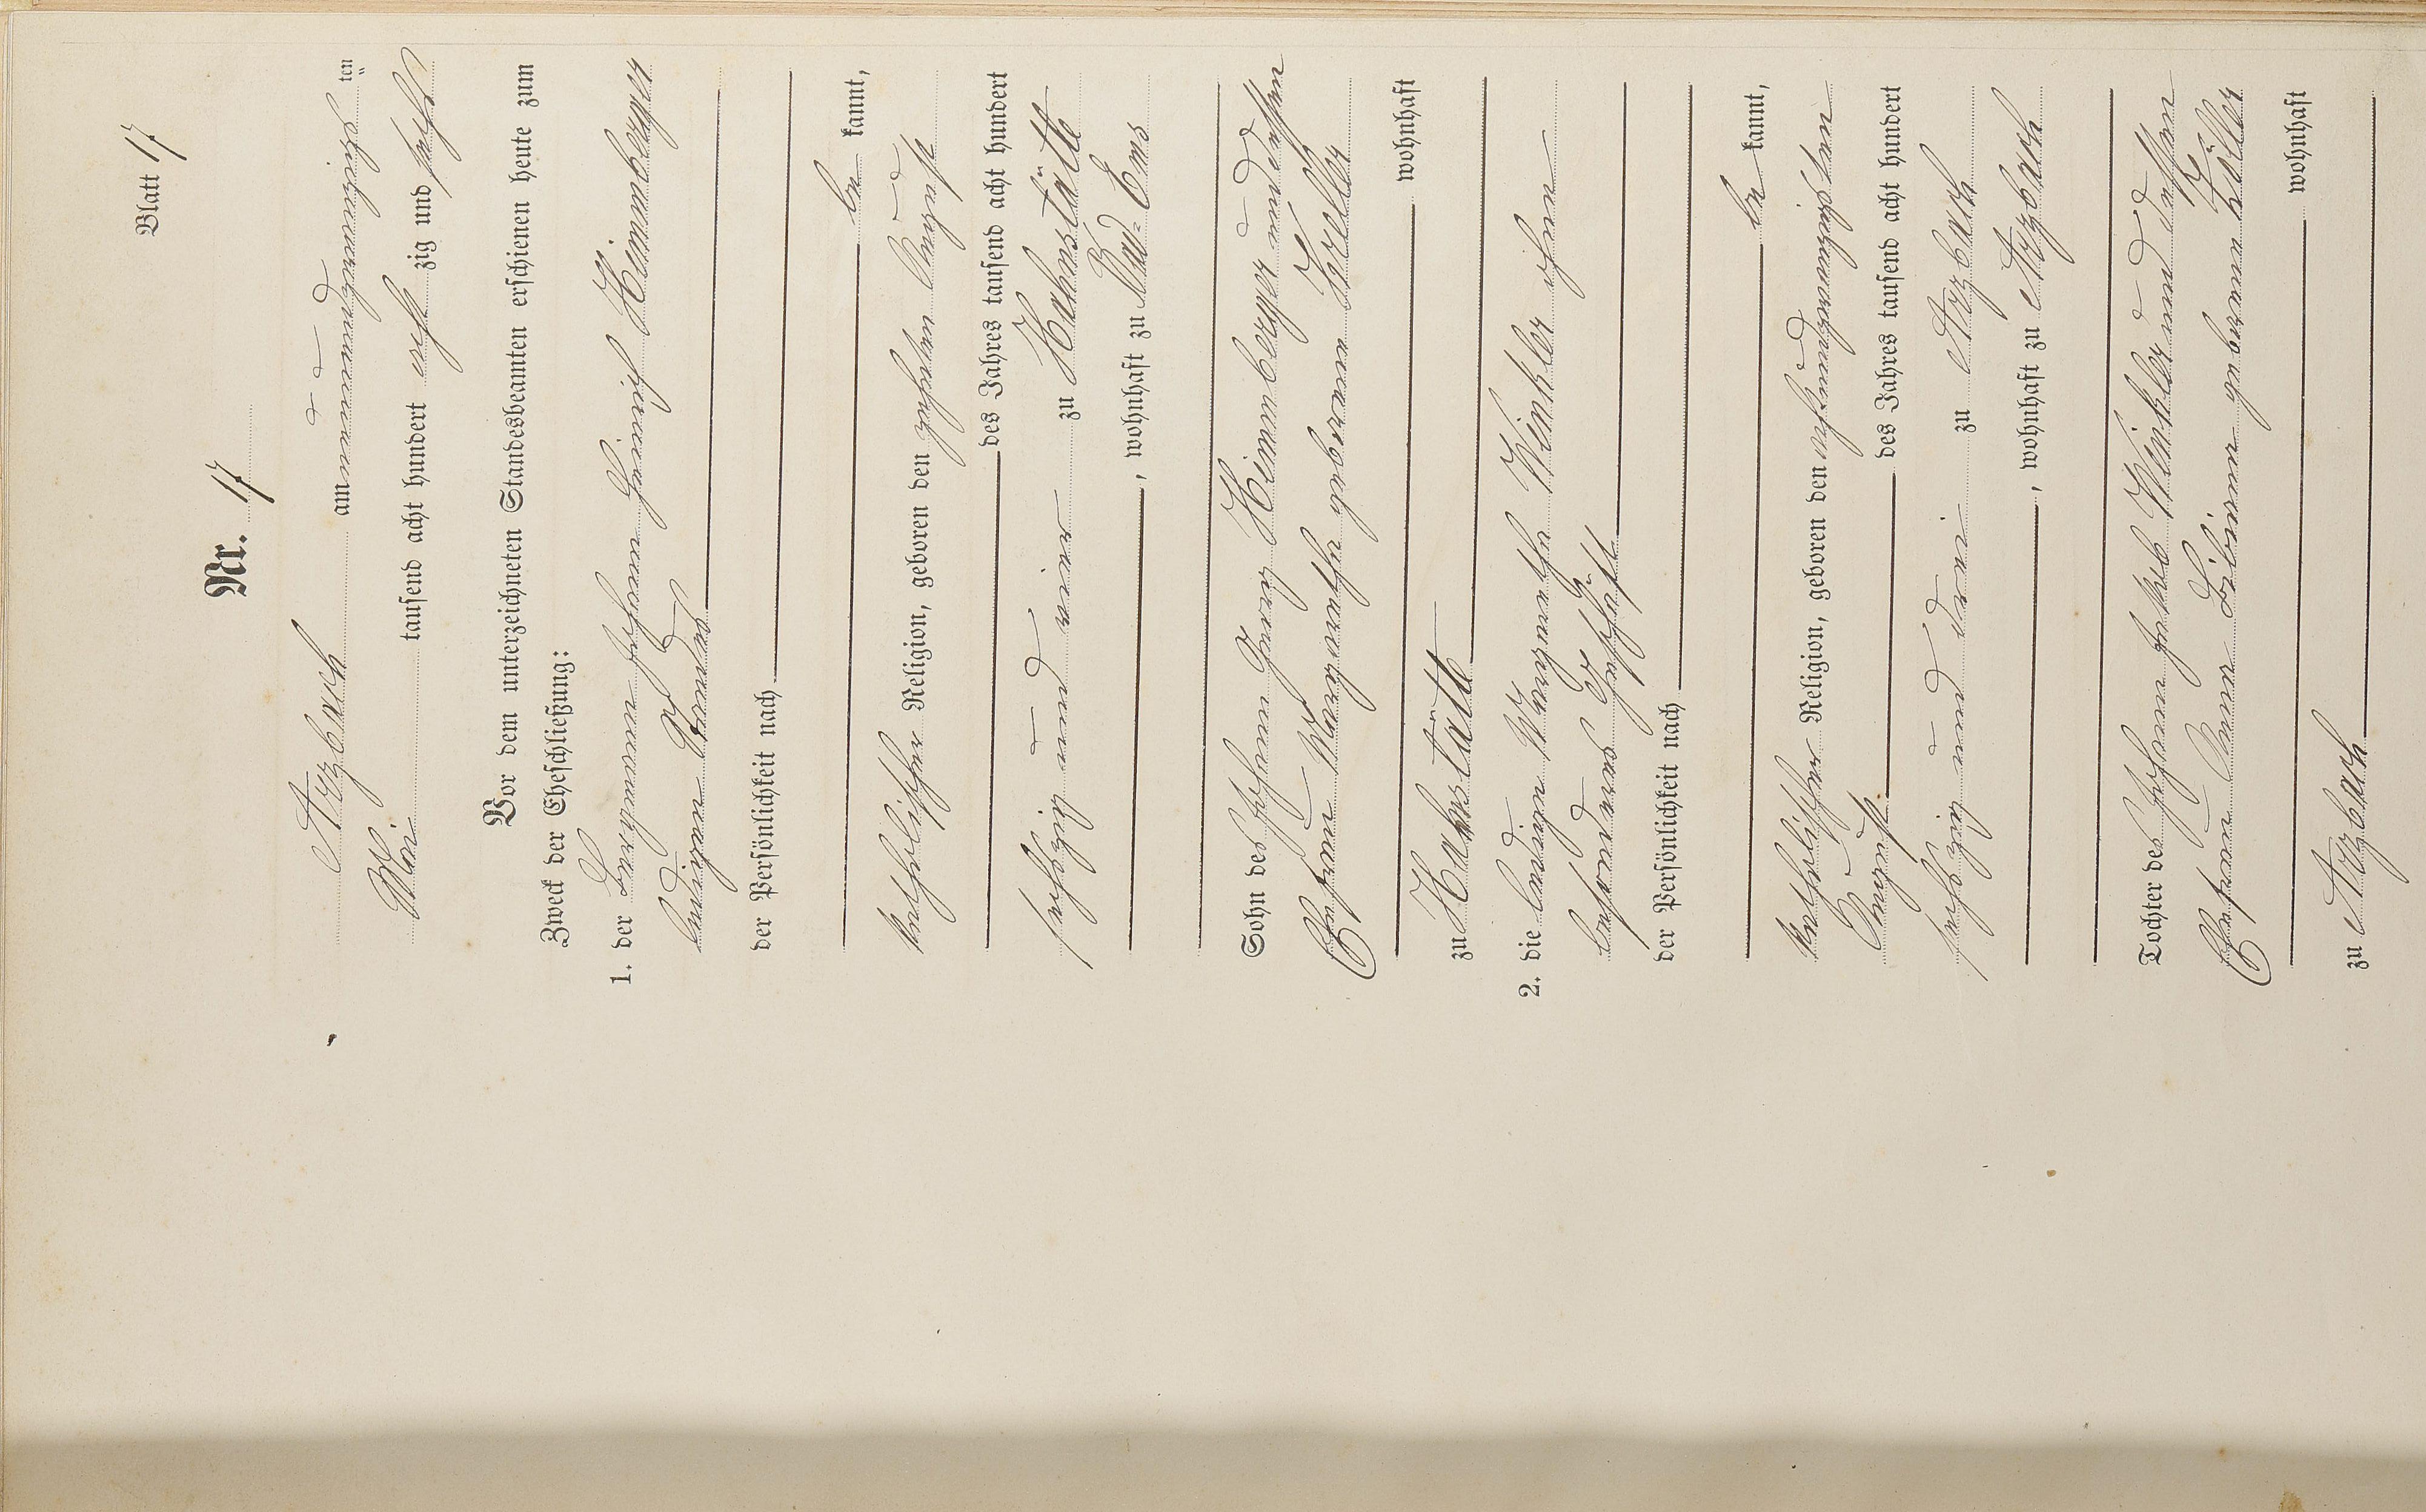 Blatt 17
Nr. 17
Arzbach am neunundzwanzigsten
Mai tausend acht hundert acht zig und sechs
Vor dem unterzeichneten Standesbeamten erschienen heute zum
Zweck der Eheschließung:
1. der Bergmann Johann Heinrich Himmberger
ledigen Standes
der Persönlichkeit nach
be kannt,
katholischer Religion, geboren den zehnten August
des Jahres tausend acht hundert
sechszig und vier zu Hahnstätte
, wohnhaft zu Bad-Ems
Sohn des Johann Georg Himmberger und dessen
Ehefrau Margaretha geborenen Kreller
wohnhaft
zu Hahnstätte
2. die ledigen Margaretha Winkler ohne
besonderes Geschäft
der Persönlichkeit nach
be kannt,
katholischer Religion, geboren den achtundzwanzigsten
August des Jahres tausend acht hundert
sechszig und drei zu Arzbach
, wohnhaft zu Arzbach
Tochter des Johann Jakob Winkler und dessen
Ehefrau Anna geborenen Zöller
wohnhaft
zu Arzbach